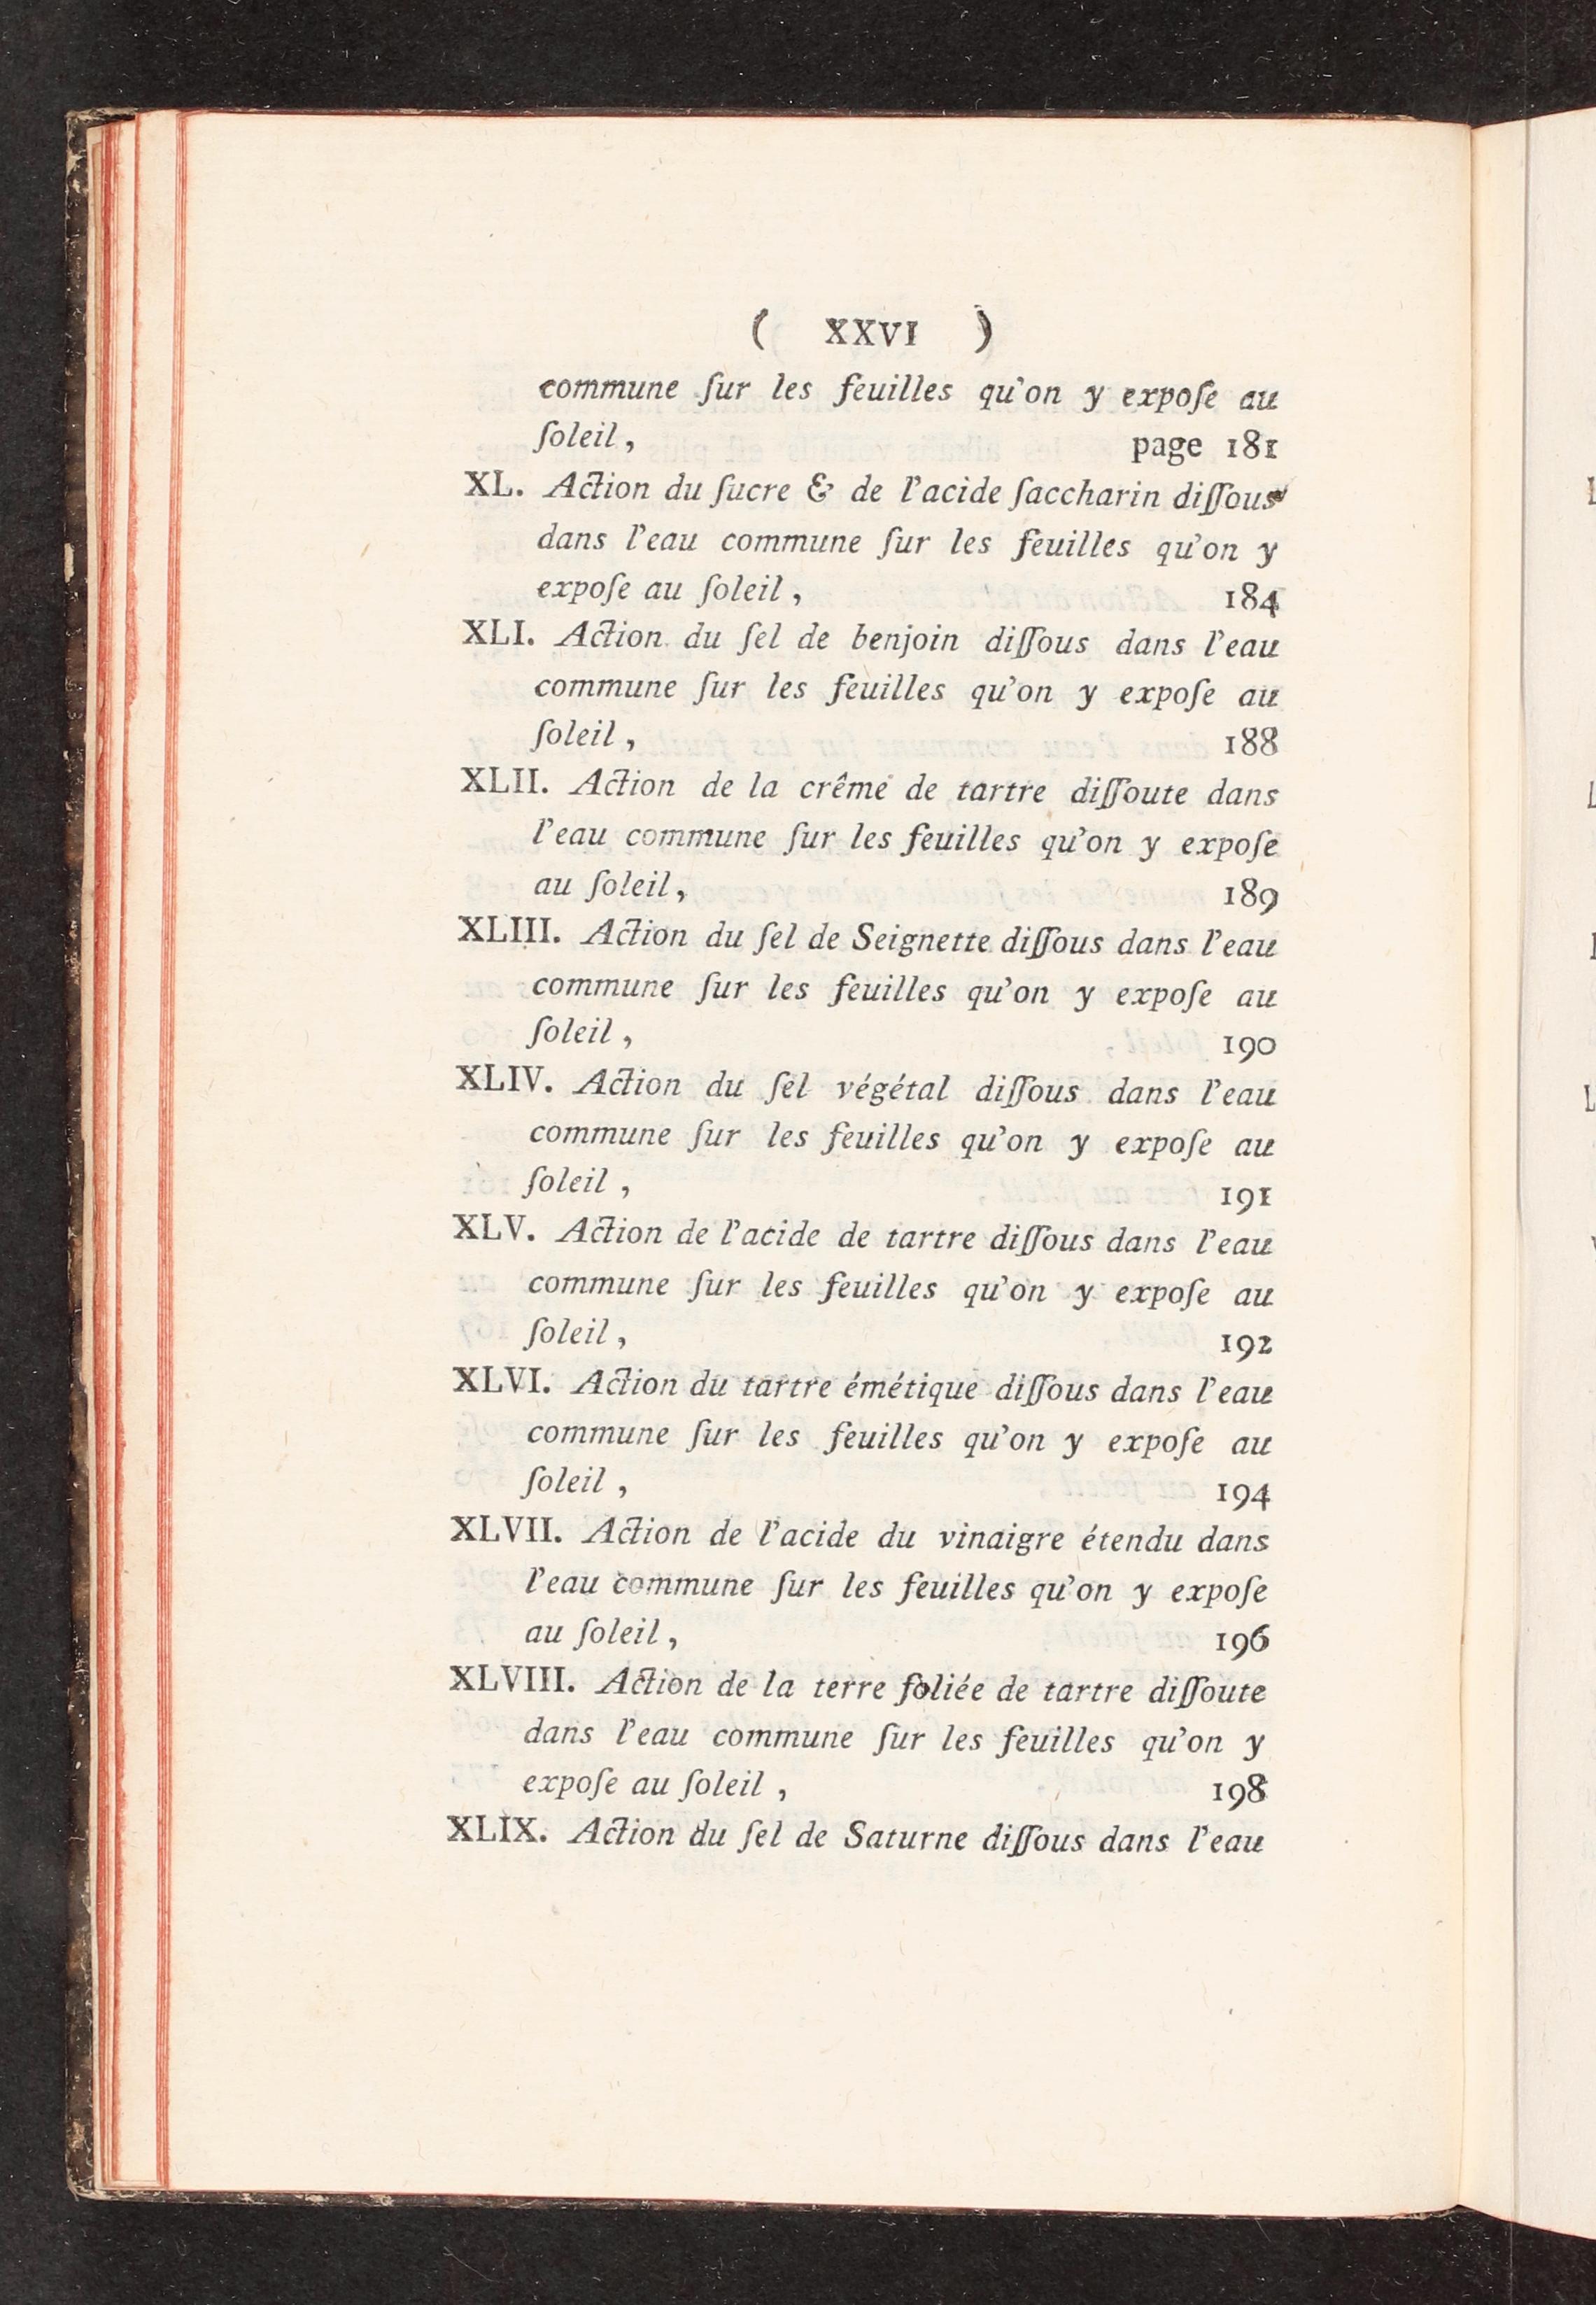 ( XXVI )
commune ſur les feuilles qu'on y expoſe au
ſoleil, page 181
XL. Action du ſucre & de l'acide ſaccharin diſſous
dans l'eau commune ſur les feuilles qu'on y
expoſe au ſoleil, 184
XLI. Action du ſel de benjoin diſſous dans l'eau
commune ſur les feuilles qu'on y expoſe au
ſoleil, 188
XLII. Action de la crême de tartre diſſoute dans
l'eau commune ſur les feuilles qu'on y expoſe
au ſoleil, 189
XLIII. Action du ſel de Seignette diſſous dans l'eau
commune ſur les feuilles qu'on y expoſe au
ſoleil, 190
XLIV. Action du ſel végétal diſſous dans l'eau
commune ſur les feuilles qu'on y expoſe au
ſoleil, 191
XLV. Action de l'acide de tartre diſſous dans l'eau
commune ſur les feuilles qu'on y expoſe au
ſoleil, 192
XLVI. Action du tartre émétique diſſous dans l'eau
commune ſur les feuilles qu'on y expoſe au
ſoleil, 194
XLVII. Action de l'acide du vinaigre étendu dans
l'eau commune ſur les feuilles qu'on y expoſe
au ſoleil, 196
XLVIII. Action de la terre foliée de tartre diſſoute
dans l'eau commune ſur les feuilles qu'on y
expoſe au ſoleil, 198
XLIX. Action du ſel de Saturne diſſous dans l'eau